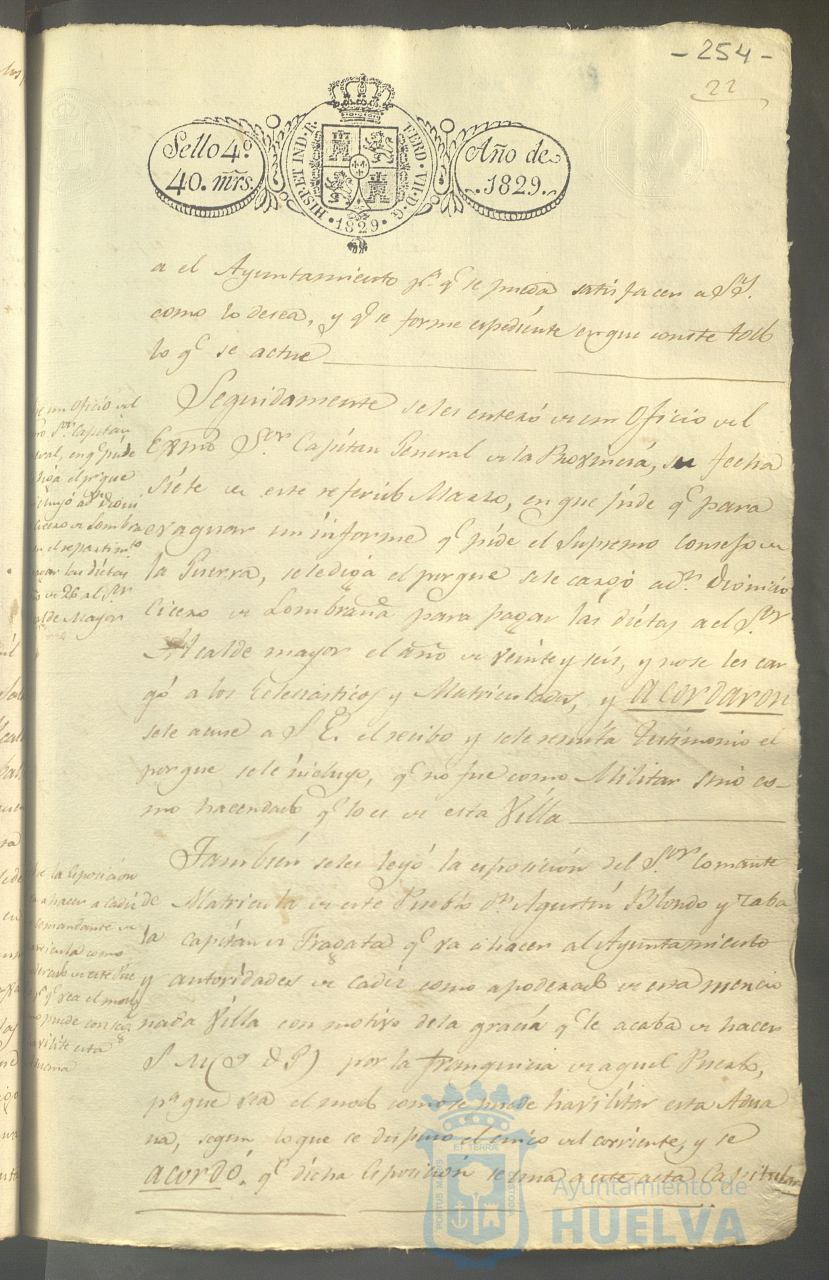 - 254 -
22
Sello 4.º
40. mrs.
HISP. ET IND. R. FERD. VII. D. G.
1829
Año de
1829.
a el Ayuntamiento pª. qᵉ se pueda satisfacer a S.Y.
como lo desea, y qᵉ se forme expediente en que conste todo
lo qᵉ se actue
Seguidamente se les enteró de un Oficio del
Exmo Sᵒʳ Capitan General de la Provincia, su fecha
siete de este referido Marzo, en que pide qᵉ para
evaquar un informe qᵉ pide el Supremo Consejo de
la Guerra, se le diga el porque se le cargó a Dⁿ. Dionicio
Cicero de Lombraña para pagar las dietas a el Sᵒʳ
Alcalde mayor el año de veinte y seis, y no se les car
gó a los Eclesiasticos y Matriculados, y acordaron
se le acuse a S.E. el recibo y se le remita testimonio el
porque se le incluyo, qᵉ no fue como Militar sino co-
mo hacendado qᵉ lo es de esta Villa
Tambien se les leyó la exposicion del Sᵒʳ Comante
de Matricula de este Pueblo Dⁿ. Agustin Blondo y Zaba
la capitan de Fragata qᵉ va a hacer al Ayuntamiento
y autoridades de Cadiz como apoderado de esta mencio
nada Villa con motivo de la gracia qᵉ le acaba de hacer
S M (Q D G) por la franquicia de aquel Puerto,
pª que vea el modo como se puede havilitar esta Adua
na, segun lo que se dispuso el cinco del corriente, y se
acordó, qᵉ dicha Exposicion se una a este acta Capitular
de un Oficio del
Sᵒʳ Capitan
en qᵉ pide
diga el porque
Cicero de Lombra
en el repartimᵗᵒ
pagar las dietas
de 26 al Sᵒʳ
Alcalde Mayor
la Exposicion
a hacer a Cadiz
comandante de
matricula como
apoderado de este Pue
qᵉ vea el modo
puede con
havilite esta
Ayuntamiento de
HUELVA